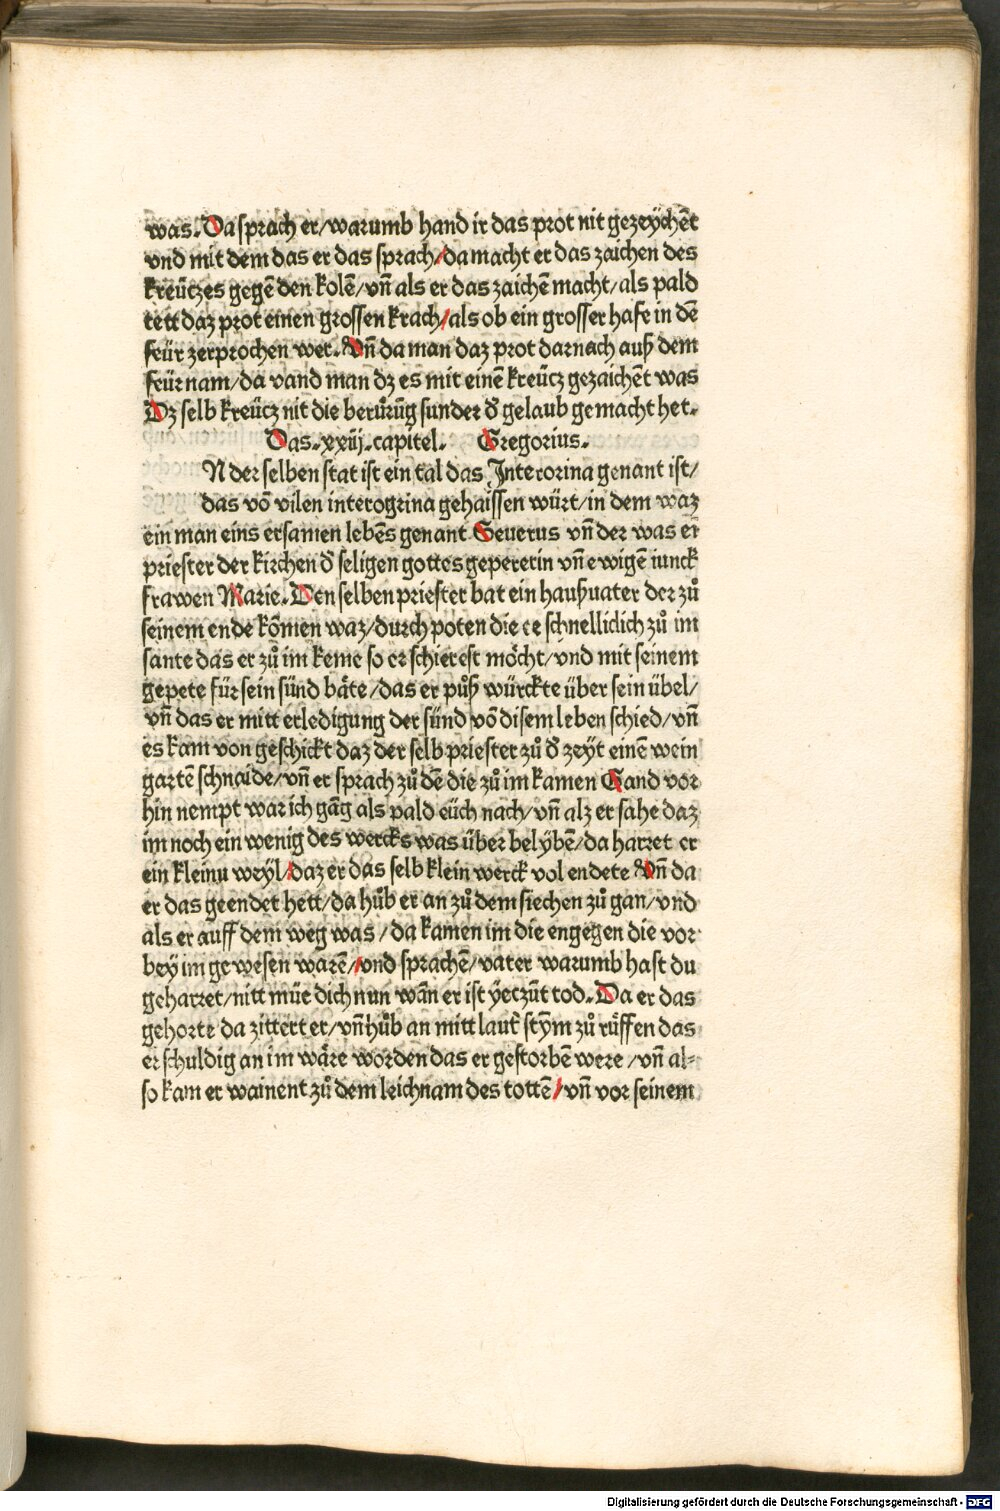 was. Da sprach er/warumb hand ir das prot nit gezeÿchēt
vnd mit dem das er das sprach/da macht er das zaichen des
kreützes gegē den kolē/vn̄ als er das zaichē macht/als pald
tett daz prot einen grossen krach/als ob ein grosser hafe in dē
feür zerprochen wer. Vn̄ da man daz prot darnach auß dem
feür nam/da vand man dz es mit einē kreütz gezaichēt was
Dz selb kreütz nit die berůrūg sunder d' gelaub gemacht het.
Das .xxiij. capitel. Gregorius.
N der selben stat ist ein tal das Interorina genant ist/
das vō vilen interogrina gehaissen würt/in dem waz
ein man eins ersamen lebēs genant Seuerus vn̄ der was ei
priester der kirchen d' seligen gottes gepererin vn̄ ewigē iunck
frawen Marie. Den selben priester bat ein haußuater der zů
seinem ende kōmen waz/durch poten die ee schnelliclich zů im
sante das er zů im keme so er schierest möcht/vnd mit seinem
gepete für sein sünd bäte/das er půß würckte über sein übel/
vn̄ das er mitt erledigung der sünd vō disem leben schied/vn̄
es kam von geschickt daz der selb priester zů d' zeÿt einē wein
gartē schnaide/vn̄ er sprach zů dē die zů im kamen Gand vor
hin nempt war ich gāg als pald eüch nach/vn̄ alz er sahe daz
im noch ein wenig des wercks was über belÿbē/da harret er
ein kleinu weÿl/daz er das selb klein werck vol endete Vn̄ da
er das geendet hett/da hůb er an zů dem siechen zů gan/vnd
als er auff dem weg was/da kamen im die engegen die vor
bey im gewesen warē/vnd sprachē/vater warumb hast du
geharret/nitt müe dich nun wān er ist ÿeczūt tod. Da er das
gehorte da zittert er/vn̄ hůb an mitt laut' stÿm zů rüffen das
er schuldig an im wäre worden das er gestorbē were/vn̄ al-
so kam er wainent zů dem leichnam des tottē/vn̄ vor seinem
Digitalisierung gefördert durch die Deutsche Forschungsgemeinschaft - DFG